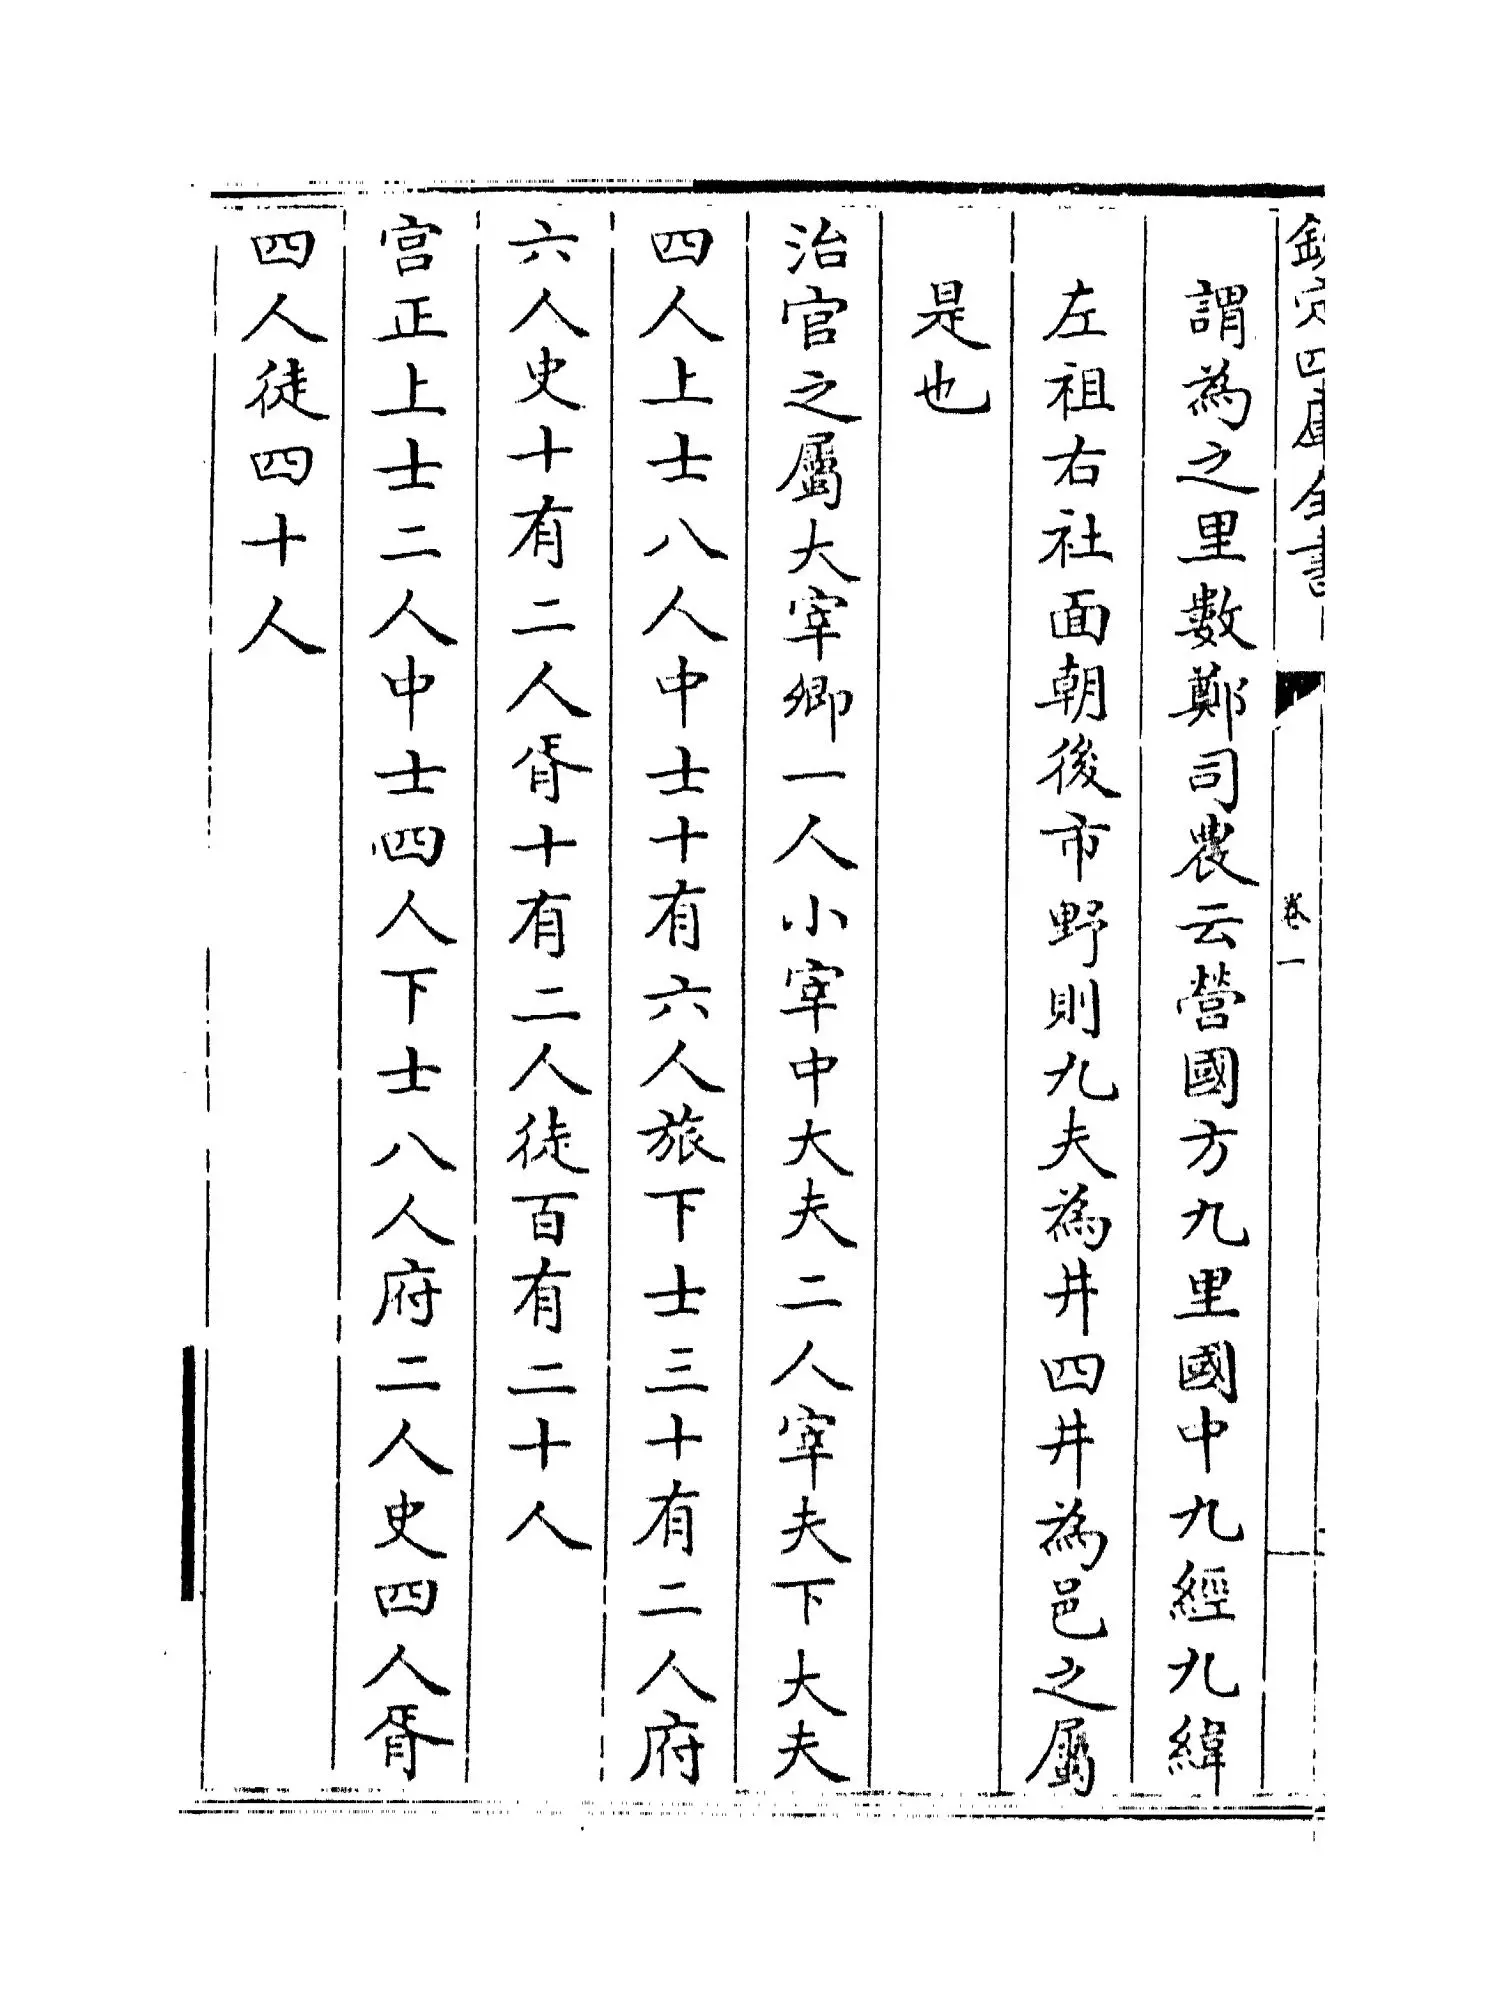 欽定四庫全書
卷一
謂為之里數鄭司農云營國方九里國中九經九緯
左祖右社面朝後市野則九夫為井四井為邑之屬
是也
治官之屬大宰卿一人小宰中大夫二人宰夫下大夫
四人上士八人中士十有六人旅下士三十有二人府
六人史十有二人胥十有二人徒百有二十人
宫正上士二人中士四人下士八人府二人史四人胥
四人徒四十人